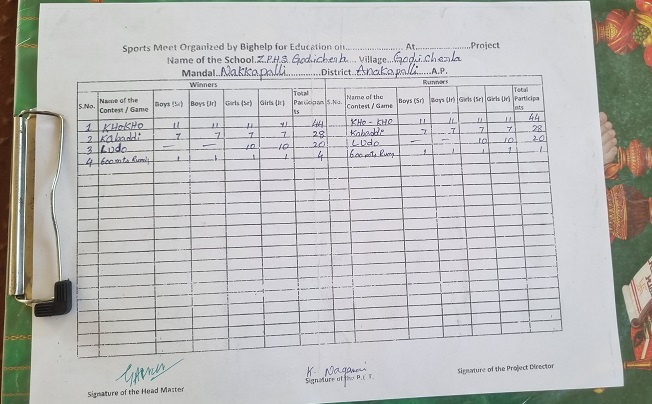 Sports Meet Organized by Bighelp for Education on.................... At....................Project
Name of the School. Z.P.H.S. Godicherla... Village..Godicherla
Mandal Nakkapalli............District Anakapalli......A.P.
Winners Runners
S.No. Name of the Contest / Game Boys (Sr) Boys (Jr) Girls (Sr) Girls (Jr) Total Participants S.No. Name of the Contest / Game Boys (Sr) Boys (Jr) Girls (Sr) Girls (Jr) Total Participants
1 KHOKHO 11 11 11 11 44 KHO-KHO 11 11 11 11 44
2 Kabaddi 7 7 7 7 28 Kabaddi 7 7 7 7 28
3 Ludo — — 10 10 20 LUDO — — 10 10 20
4 600 mts 1 1 1 1 4 600 mts 1 1 1 1 1
K. Nagamani
Signature of the Head Master Signature of the P.E.T. Signature of the Project Director